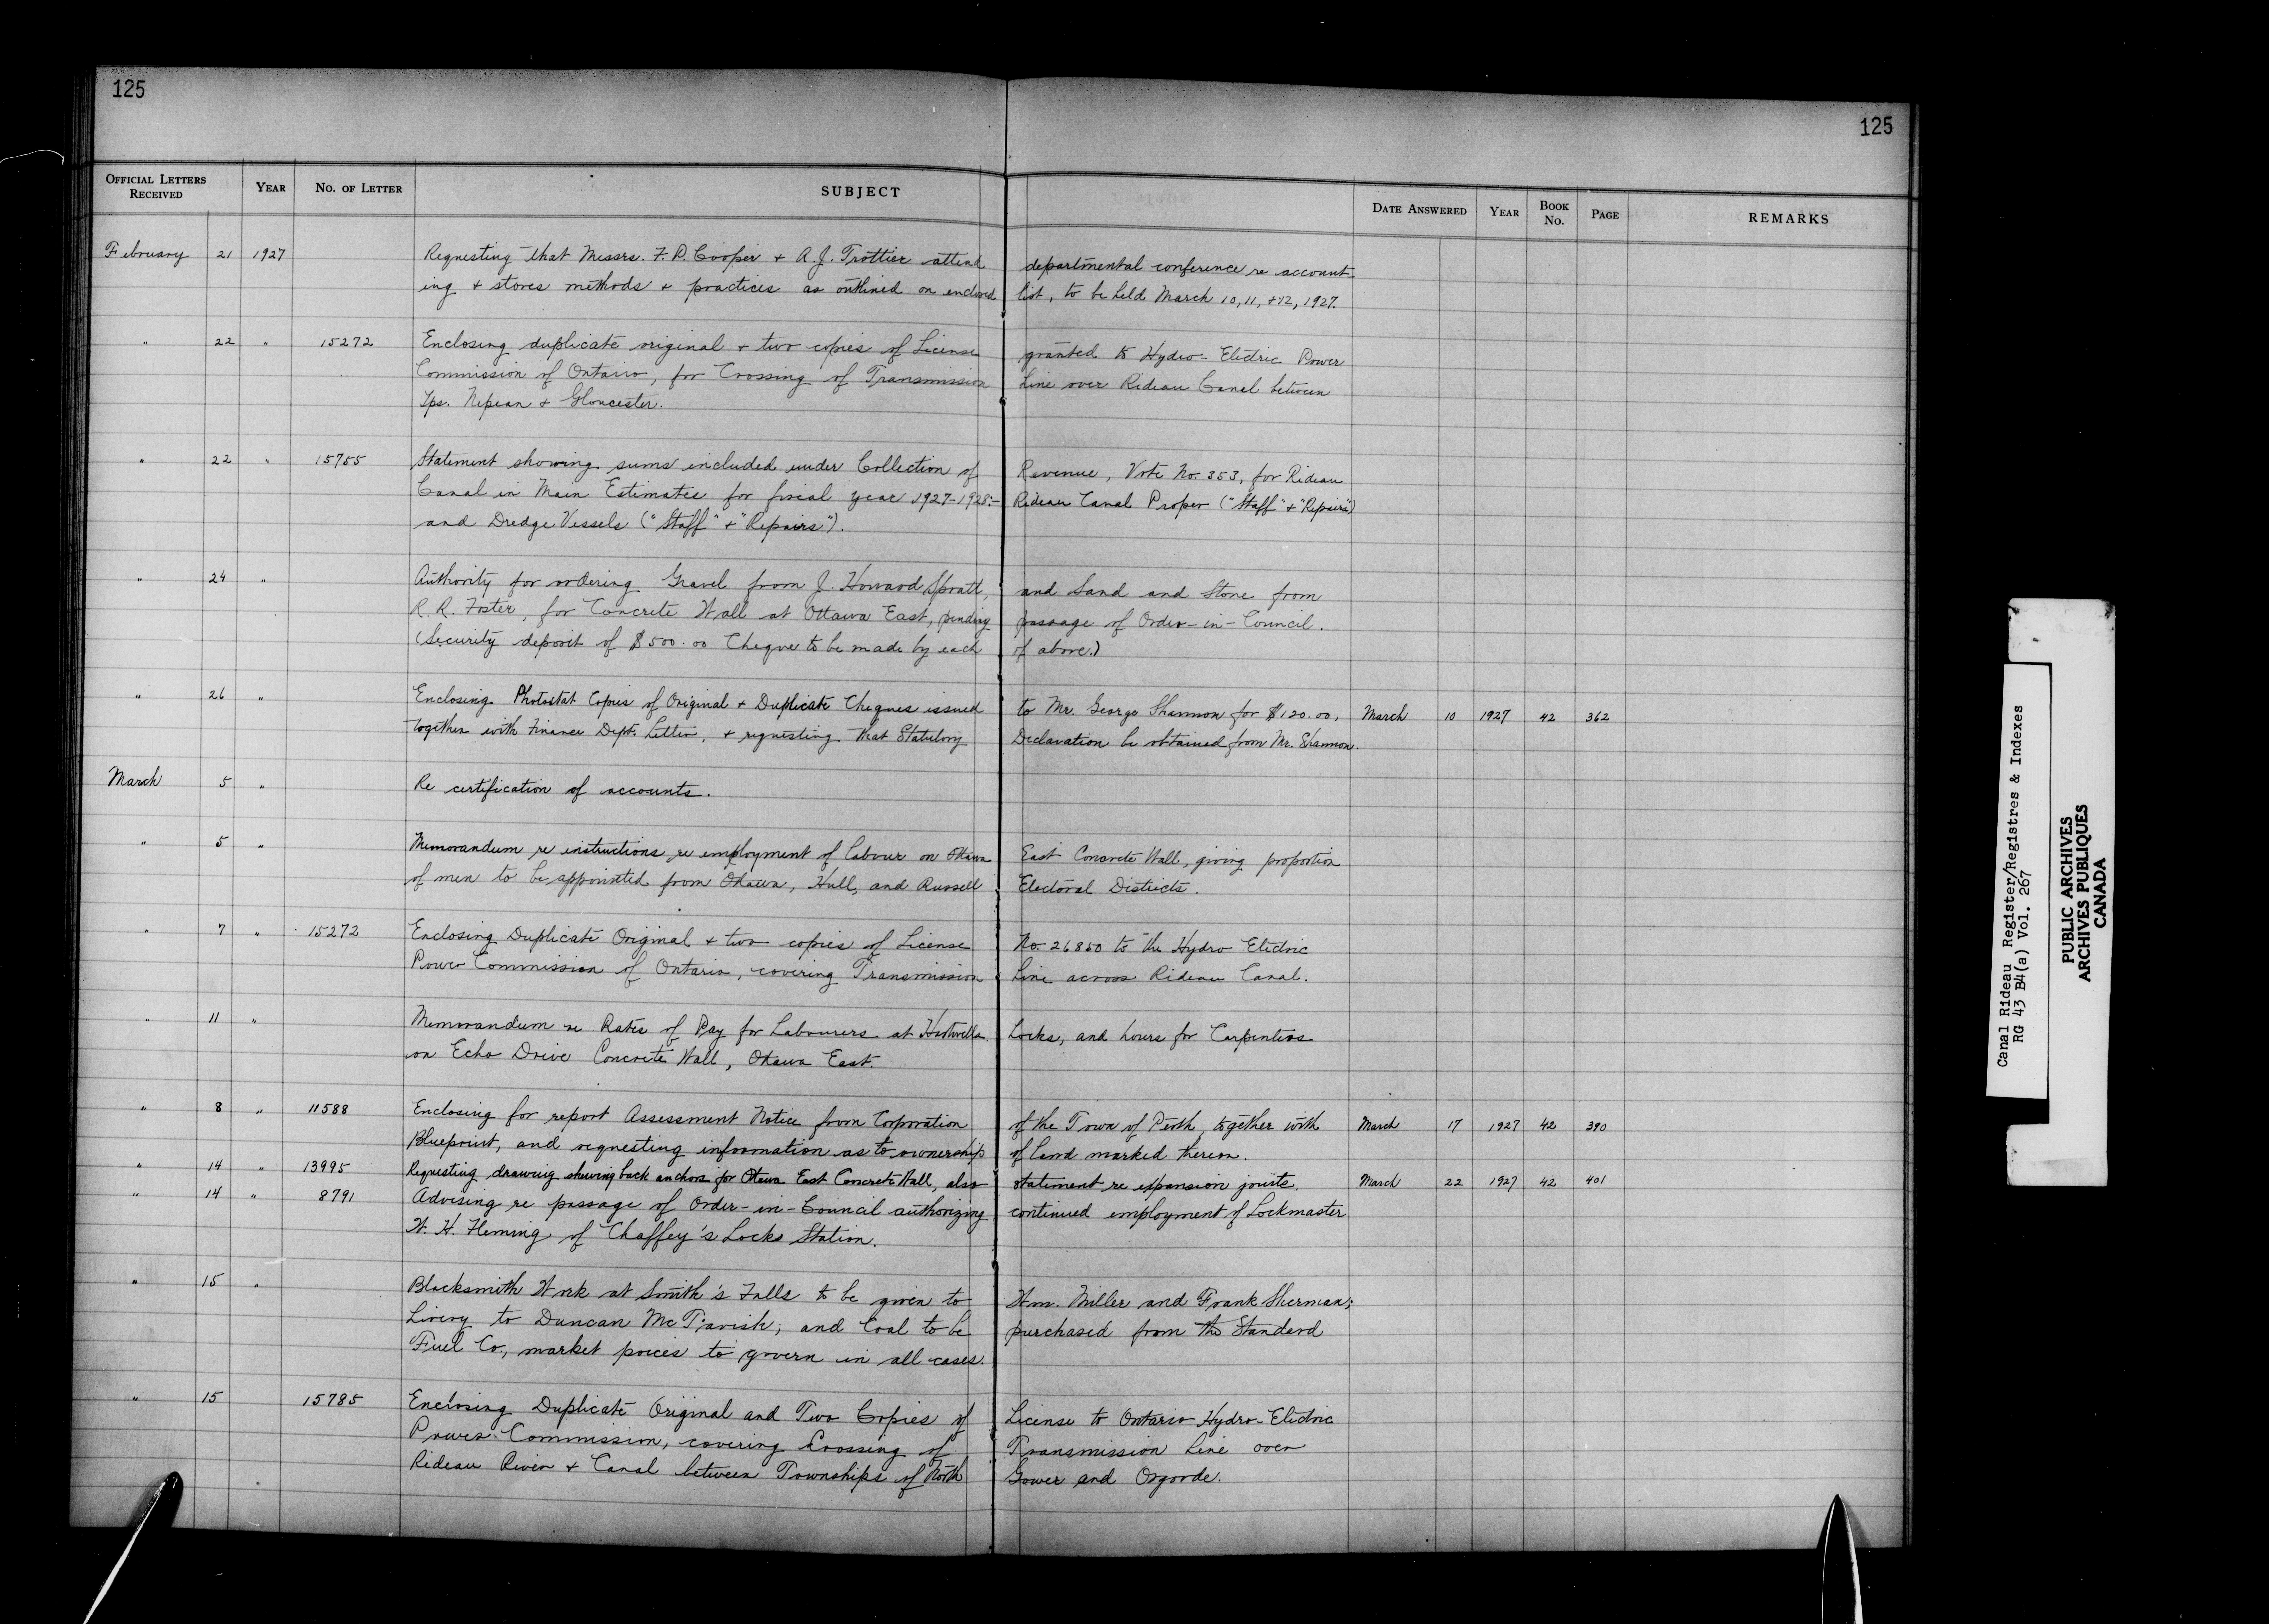 125
125
OFFICIAL LETTERS RECEIVED YEAR NO. OF LETTER SUBJECT DATE ANSWERED YEAR BOOK No. PAGE REMARKS
February 21 1927 Requesting that Messrs. F. P. Cooper + A. J. Trottier attend departmental conference re account-
ing + stores methods + practices as outlined on enclosed list, to be held March 10, 11, +12, 1927.
" 22 " 15272 Enclosing duplicate original + two copies of License granted to Hydro-Electric Power
Commission of Ontario, for Crossing of Transmission Line over Rideau Canal between
Tps. Nepean + Gloucester.
" 22 " 15755 Statement showing sums included under Collection of Revenue, Vote No. 353, for Rideau
Canal in Main Estimates for fiscal year 1927-1928:- Rideau Canal Proper ("Staff" + "Repairs")
and Dredge Vessels ("Staff" + "Repairs").
" 24 " Authority for ordering Gravel from J. Howard Spratt, and Sand and Stone from
R. R. Foster, for Concrete Wall at Ottawa East, pending passage of Order-in-Council.
(Security deposit of $500.00 Cheque to be made by each of above.)
" 26 " Enclosing Photostat Copies of Original + Duplicate Cheques issued to Mr. George Shannon for $120.00, March 10 1927 42 362
together with Finance Dept. Letter, + requesting that Statutory Declaration be obtained from Mr. Shannon.
March 5 " Re certification of accounts.
" 5 " Memorandum re instructions re employment of labour on Ottawa East Concrete Wall, giving proportion
of men to be appointed from Ottawa, Hull, and Russell Electoral Districts.
" 7 " 15272 Enclosing Duplicate Original + two copies of License No. 26850 to the Hydro Electric
Power Commission of Ontario, covering Transmission Line across Rideau Canal.
" 11 " Memorandum re Rates of Pay for Labourers at Hartwells Locks, and hours for Carpenters
on Echo Drive Concrete Wall, Ottawa East.
" 8 " 11588 Enclosing for report Assessment Notice from Corporation of the Town of Perth, together with March 17 1927 42 390
Blueprint, and requesting information as to ownership of land marked thereon.
" 14 " 13995 Requesting drawing shewing back anchors for Ottawa East Concrete Wall, also statement re expansion joints. March 22 1927 42 401
" 14 " 8791 Advising re passage of Order-in-Council authorizing continued employment of Lockmaster
W. H. Fleming of Chaffey's Locks Station.
" 15 " Blacksmith Work at Smith's Falls to be given to Wm. Miller and Frank Sherman;
Livery to Duncan McTavish; and Coal to be purchased from the Standard
Fuel Co, market prices to govern in all cases.
" 15 15785 Enclosing Duplicate Original and Two Copies of License to Ontario Hydro-Electric
Power Commission, covering Crossing of Transmission Line over
Rideau River + Canal between Townships of North Gower and Osgoode.
Canal Rideau Register/Registres & Indexes
RG 43 B4(a) Vol. 267
PUBLIC ARCHIVES
ARCHIVES PUBLIQUES
CANADA